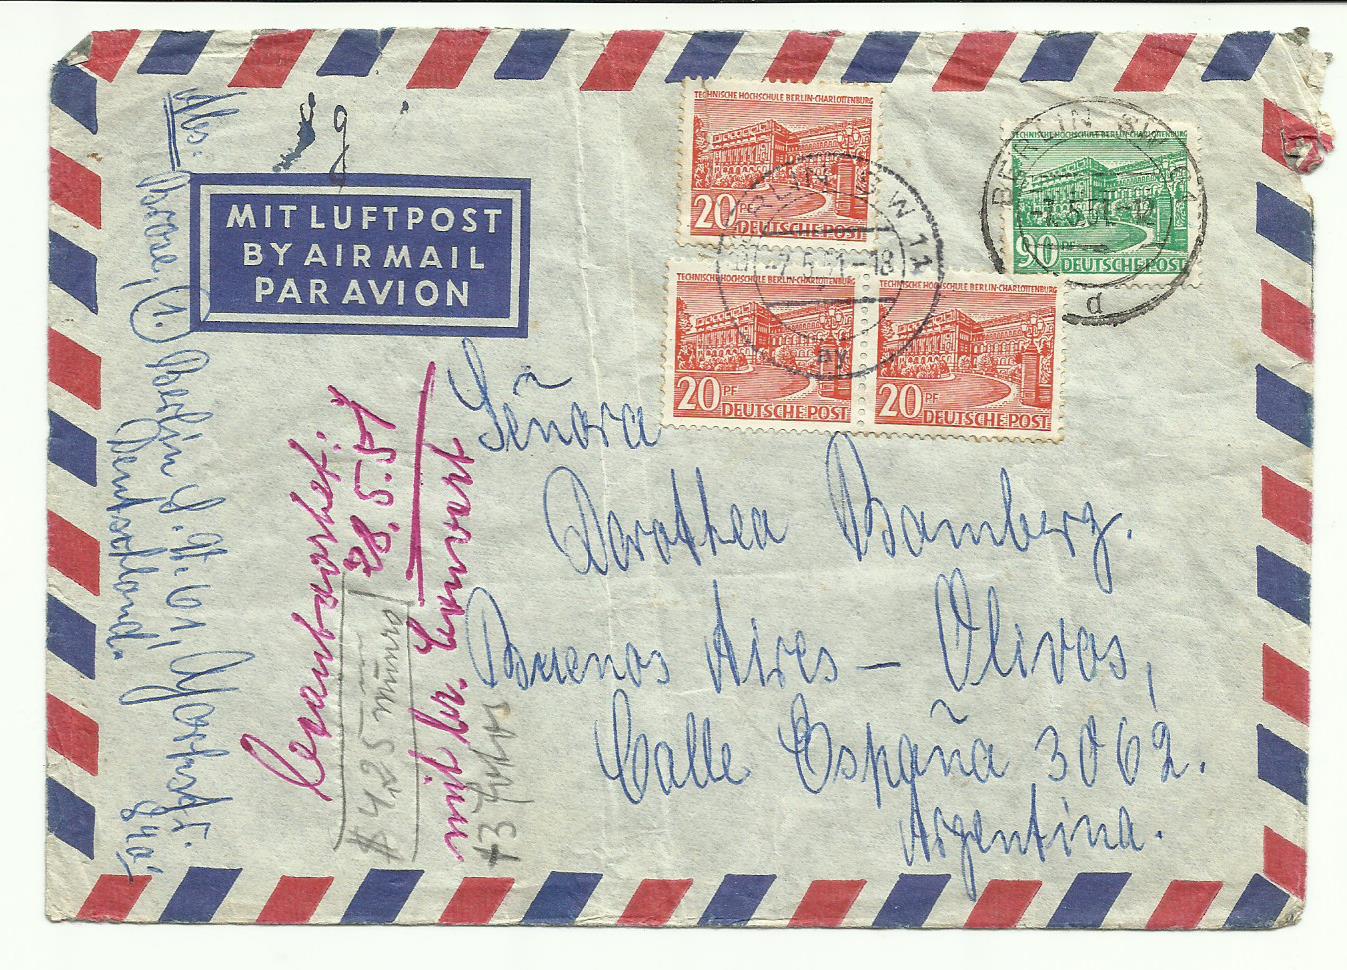 MIT LUFTPOST
BY AIRMAIL
PAR AVION
TECHNISCHE HOCHSCHULE BERLIN-CHARLOTTENBURG
20
DEUTSCHE POST
TECHNISCHE HOCHSCHULE BERLIN-CHARLOTTENBURG
90 PF
DEUTSCHE POST
TECHNISCHE HOCHSCHULE BERLIN-CHARLOTTENBURG
20 PF
DEUTSCHE POST
TECHNISCHE HOCHSCHULE BERLIN-CHARLOTTENBURG
20 PF
DEUTSCHE POST
BERLIN SW 11
-7.5.51.-12
d
BERLIN SW 11
-7.5.51-18
ay
Señora
Dorothea Bamberg.
Buenos Aires – Olivos,
Calle España 3062.
Argentina.
Abs:
Berlin
Deutschland.
beantwortet:
28.5.51
mit Luftpost
$ 4,25
+3